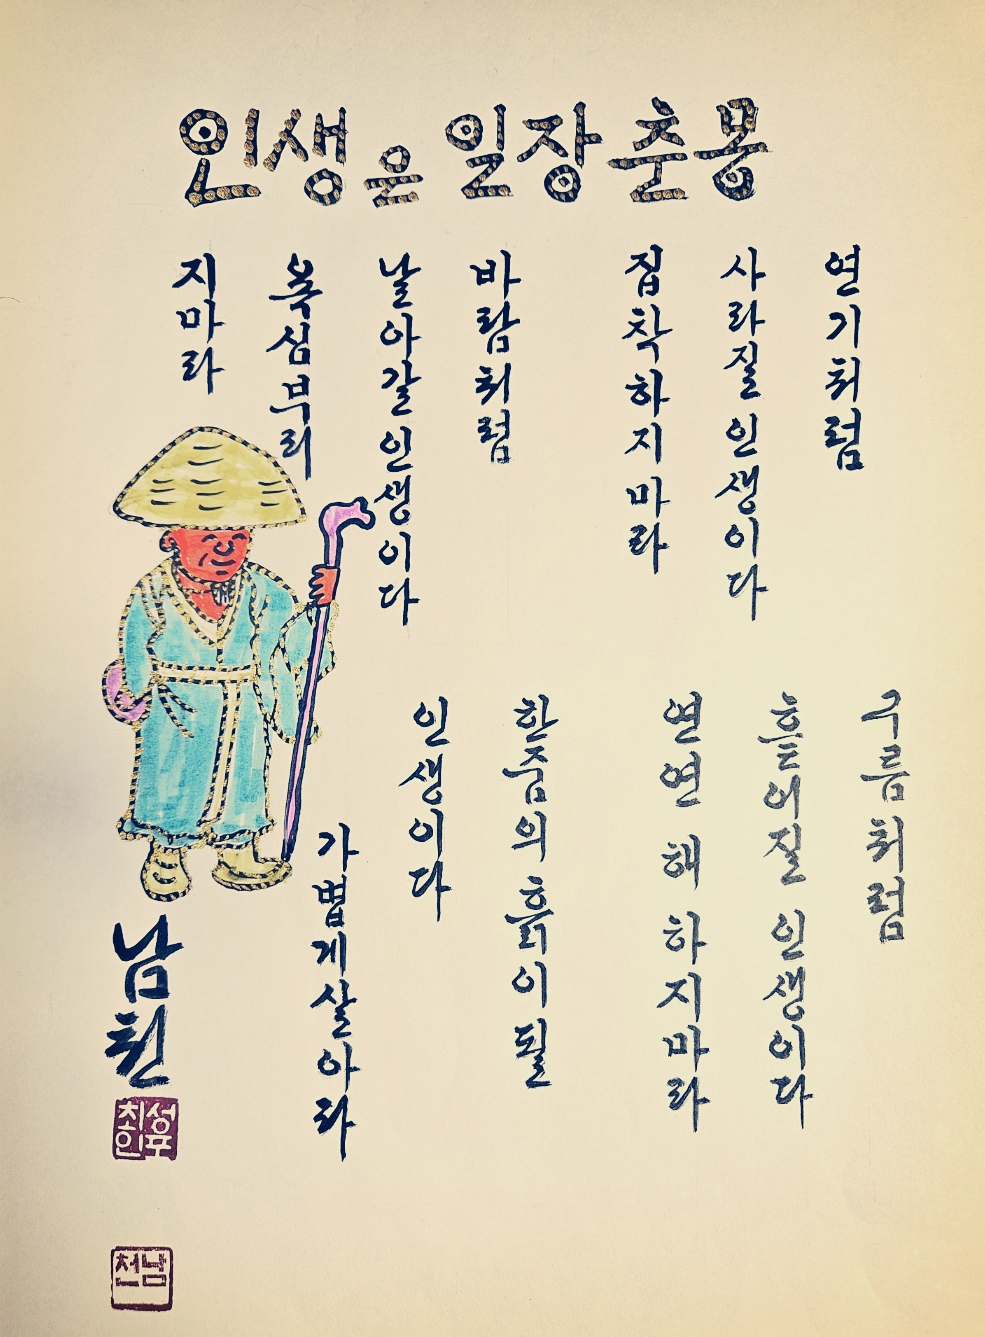 인생은 일장춘몽
연기처럼
사라질인생이다
집착하지마라
구름처럼
흩어질 인생이다
연연 해 하지마라
바람처럼
날아갈인생이다
욕심부리
지마라
한줌의 흙이될
인생이다
가볍게살아라
남천
남천